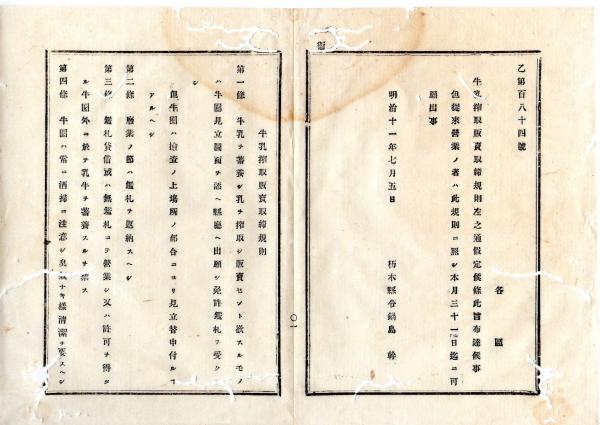 乙第百八十四號
各區
牛乳搾取販賣取締規則左之通假定候條此旨布達候事
但從來營業ノ者ハ此規則ニ照シ本月三十一日迄ニ可
願出事
明治十一年七月五日
栃木縣令鍋島 幹
〇一
牛乳搾取販賣取締規則
第一條 牛乳ヲ蓄養シ乳ヲ搾取シ販賣セント欲スルモノ
ハ牛圈見立圖面ヲ添ヘ縣廳ヘ出願シ免許鑑札ヲ受ク
シ
但牛圈ハ撿査ノ上塲所ノ都合ニヨリ見立替申付ルコ
アルヘシ
第二條 廢業ノ節ハ鑑札ヲ返納スヘシ
第三條 鑑札貸借或ハ無鑑札ニテ營業シ又ハ許可ヲ得タ
ル牛圈外ニ於テ乳牛ヲ蓄養スルヲ禁ス
第四條 牛圈ハ常ニ洒掃ニ注意シ臭氣ナキ樣清潔ヲ要スヘシ